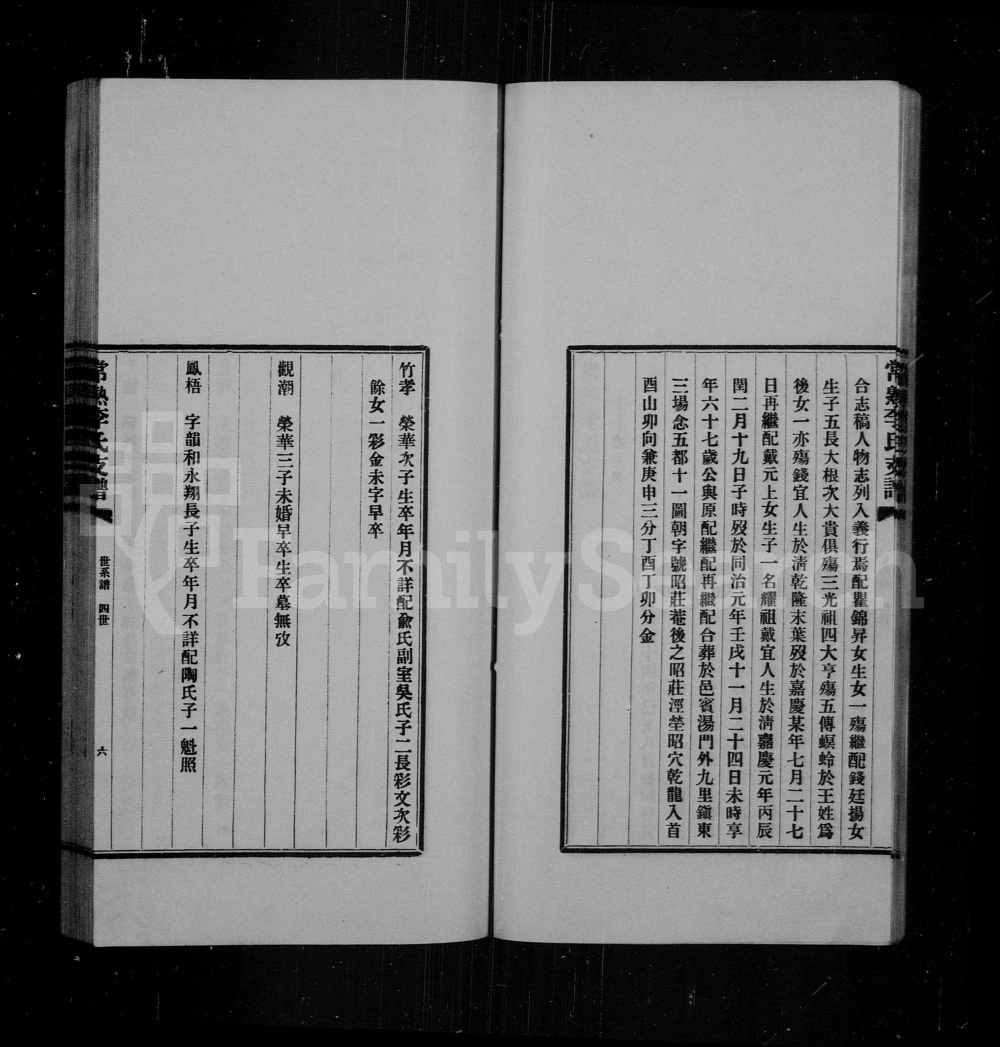 常熟李氏支譜
合志稿人物志列入義行焉配瞿錦昇女生女一殤繼配錢廷揚女
生子五長大根次大貴俱殤三光祖四大亨殤五傳螟蛉於王姓爲
後女一亦殤錢宜人生於淸乾隆末葉歿於嘉慶某年七月二十七
日再繼配戴元上女生子一名耀祖戴宜人生於淸嘉慶元年丙辰
閏二月十九日子時歿於同治元年壬戌十一月二十四日未時享
年六十七歲公與原配繼配再繼配合葬於邑賓湯門外九里鎭東
三場念五都十一圖朝字號昭莊菴後之昭莊涇塋昭穴乾龍入首
酉山卯向兼庚申三分丁酉丁卯分金
竹孝 榮華次子生卒年月不詳配兪氏副室吳氏子二長彩文次彩
餘女一彩金未字早卒
觀潮 榮華三子未婚早卒生卒墓無攷
鳳梧 字韻和永翔長子生卒年月不詳配陶氏子一魁照
常熟李氏支譜
世系譜 四世
六
FamilySearch